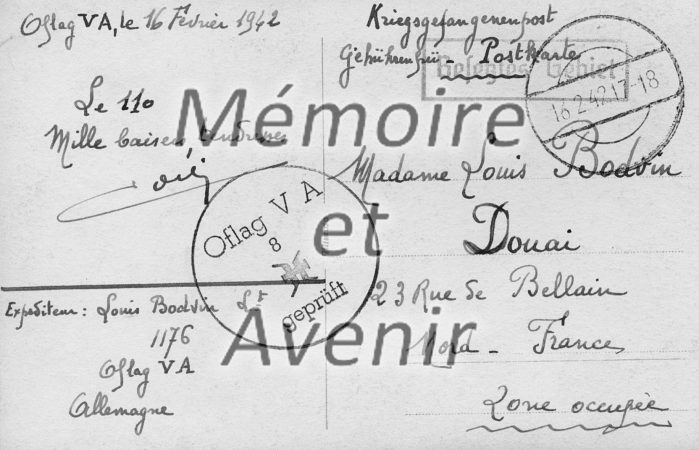 Oflag VA, le 16 Février 1942
Le 110
Mille baisers tendresses
Expéditeur: Louis Bodvin Lt
1176
Oflag VA
Allemagne
Oflag V A
8
geprüft
Kriegsgefangenenpost
Gebührenfrei - Postkarte
Belegtes Gebiet
16.2.42.17-18
Madame Louis Bodvin
Douai
23 Rue de Bellain
Nord - France
Zone occupée
Mémoire
et
Avenir